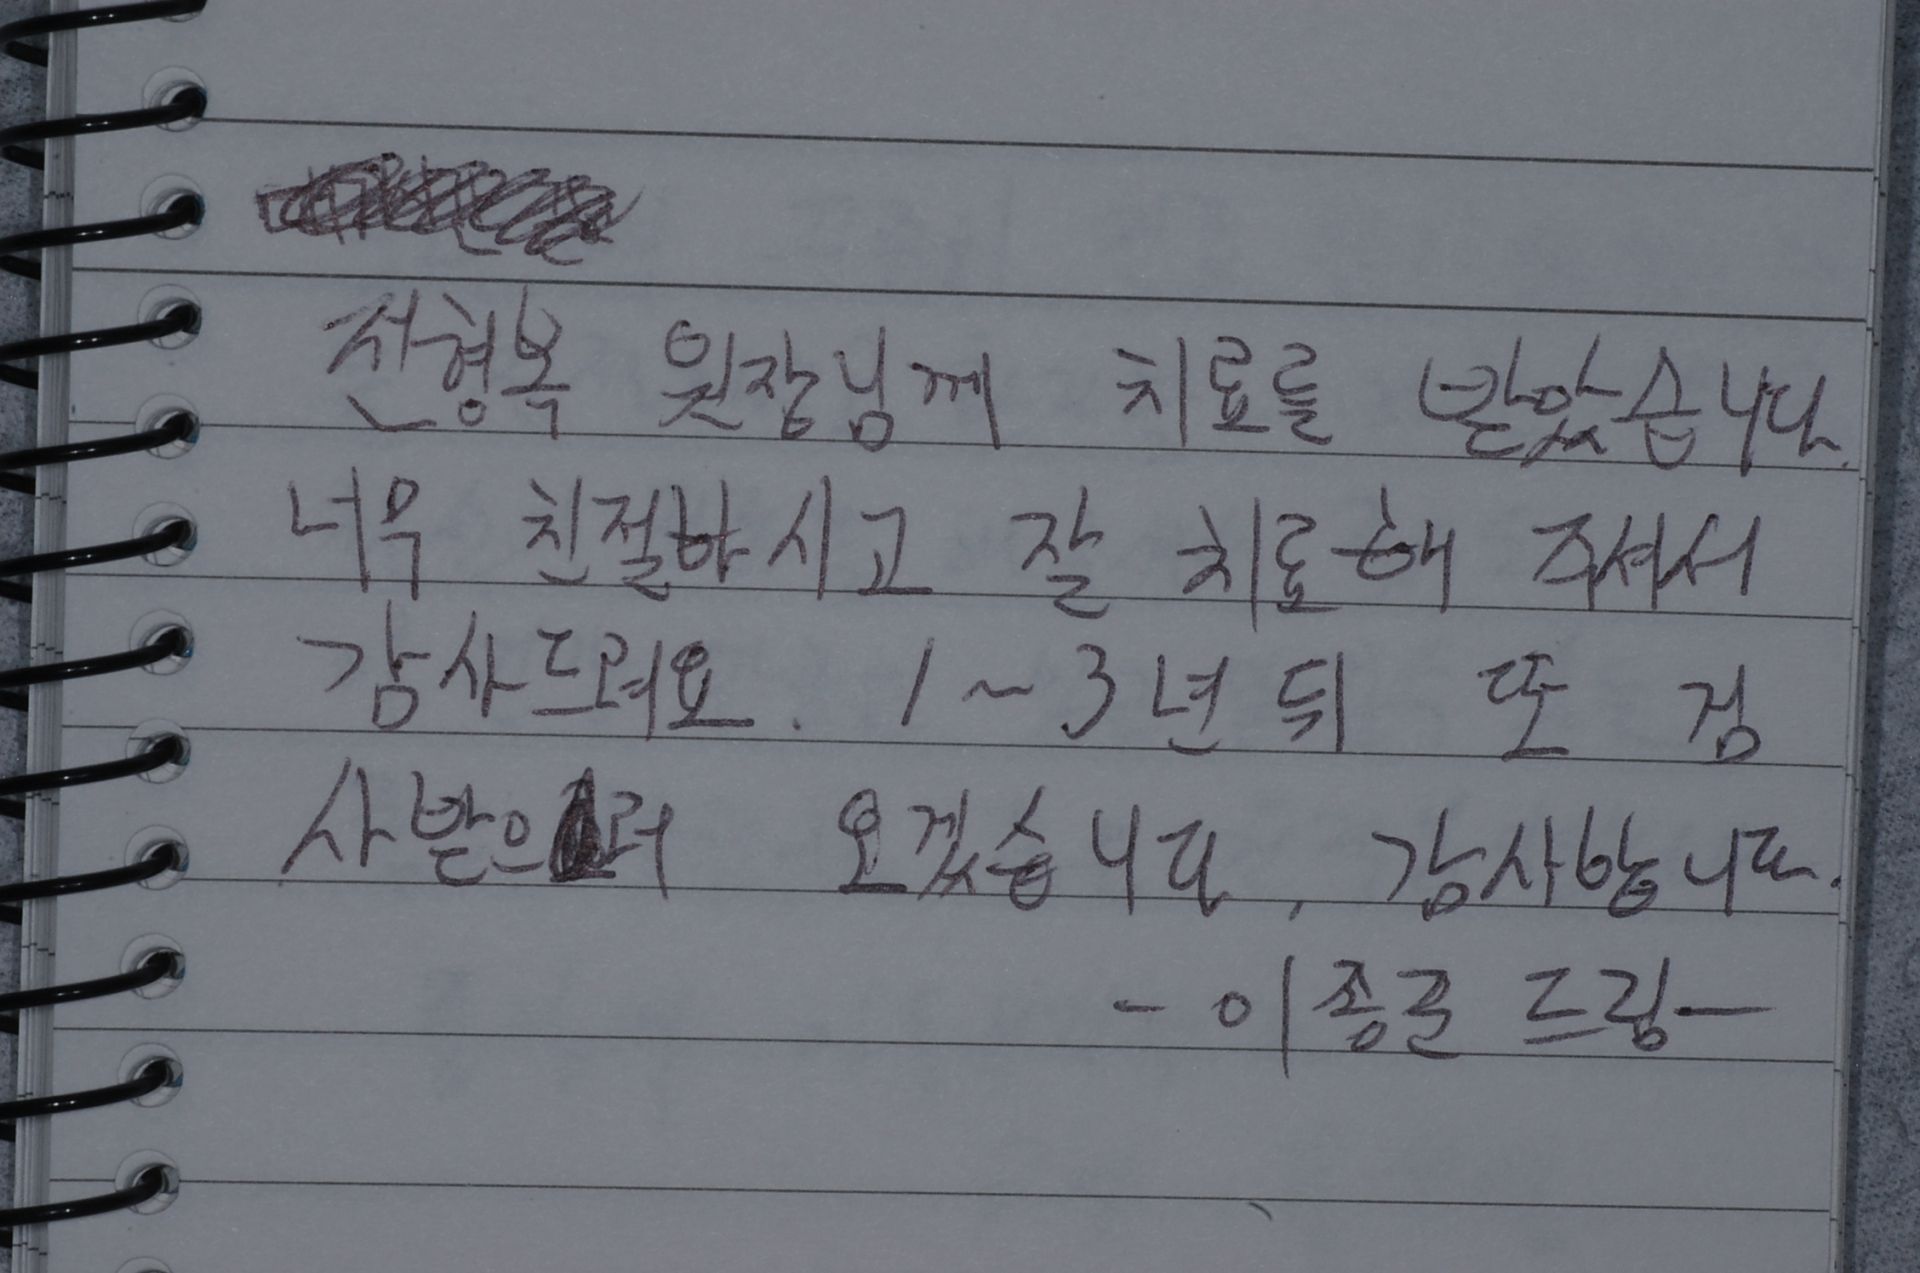 전형복 원장님께 치료를 받았습니다.
너무 친절하시고 잘 치료해 주셔서
감사드려요. 1~3년 뒤 또 검
사받으러 오겠습니다. 감사합니다.
- 이종근 드림 -